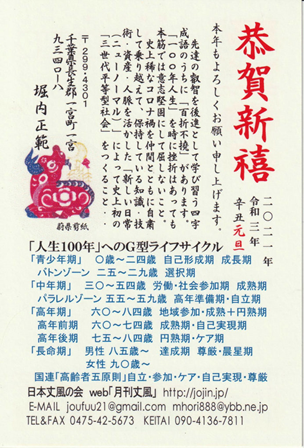 恭賀新禧
二〇二一年
令和三年
辛丑元旦
本年もよろしくお願い申し上げます。
先達の叡智を後進として学び習う四字
成語のうちに「百折不撓」があります。
「一〇〇年人生」を時に挫折はあっても
本筋では意志堅固にして屈しない。
史上稀なコロナ禍を仲間とともに自粛
して乗り越えて、保持している知識・技
術・資産・人脈を活かし、新しい日常
(ニューノーマル)」によって史上初の
「三世代平等型社会」をつくること・・
〒299-4301
千葉県長生郡一宮町一宮
九三四〇-八
堀内正範
蔚県剪紙
「人生100年」へのG型ライフサイクル
「青少年期」 〇歳〜二四歳 自己形成期 成長期
バトンゾーン 二五〜二九歳 選択期
「中年期」 三〇〜五四歳 労働・社会参加期 成熟期
パラレルゾーン 五五〜五九歳 高年準備期・自立期
「高年期」 六〇〜八四歳 地域参加・成熟+円熟期
高年前期 六〇〜七四歳 成熟期・自己実現期
高年後期 七五〜八四歳 円熟期・ケア期
「長命期」 男性 八五歳〜 達成期 尊厳・晨星期
女性 九〇歳〜
国連「高齢者五原則」自立・参加・ケア・自己実現・尊厳
日本丈風の会 web「月刊丈風」 http://jojin.jp/
E-MAIL joufuu21@gmail.com mhori888@ybb.ne.jp
TEL&FAX 0475-42-5673 KEITAI 090-4136-7811